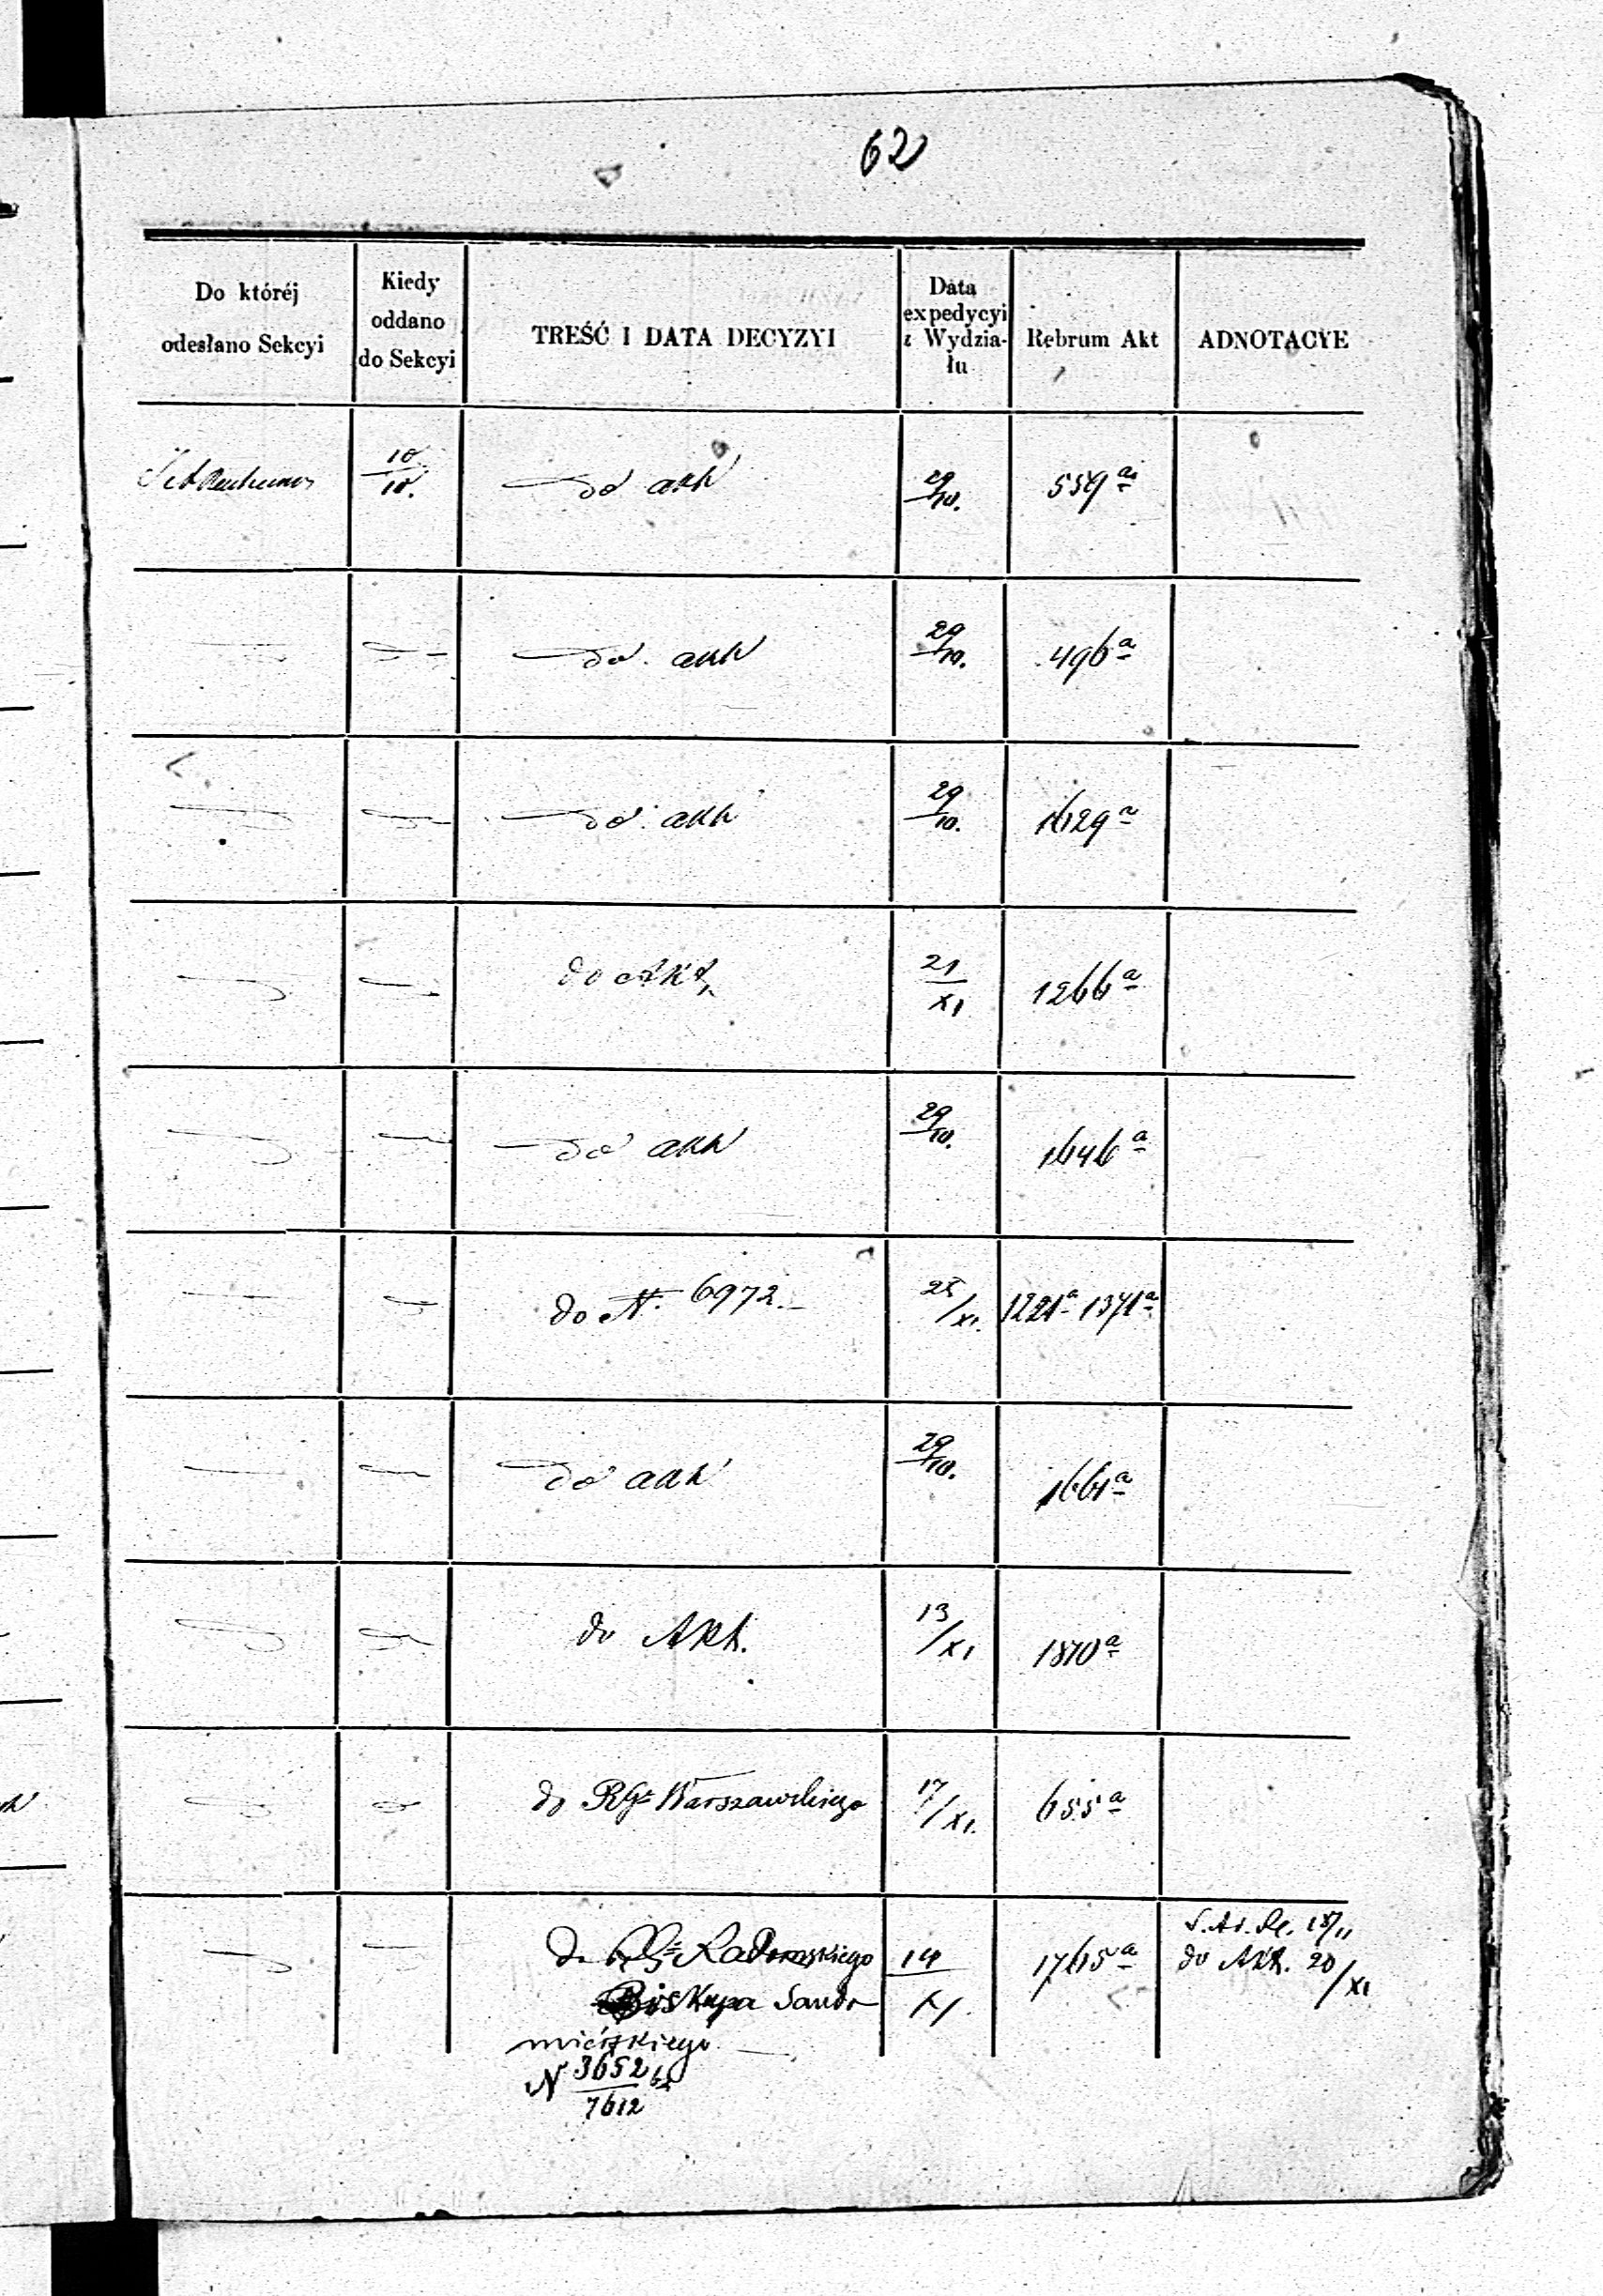 62
Do któréj
odesłano Sekcyi
Kiedy
oddano
do Sekcyi
TREŚĆ I DATA DECYZYI
Data
expedycyi
z Wydzia-
łu
Rebrum Akt
ADNOTACYE
10/10. do akt 29/10. 559 a
do akt 29/10. 496 a
do akt 29/10. 1629 a
do Akt, 21/XI 1266 a
do akt 29/10. 1646 a
do N. 6972. 25/XI. 1221 a 1371 a
do akt 29/10. 1661 a
do Akt. 13/XI 1810 a
do RG Warszawskiego 17/XI. 655 a
do RG Radomskiego 14/XI. 1765 a
Biskupa Sando
mierskiego
N 3652/7612
18/11
do Akt. 20/XI